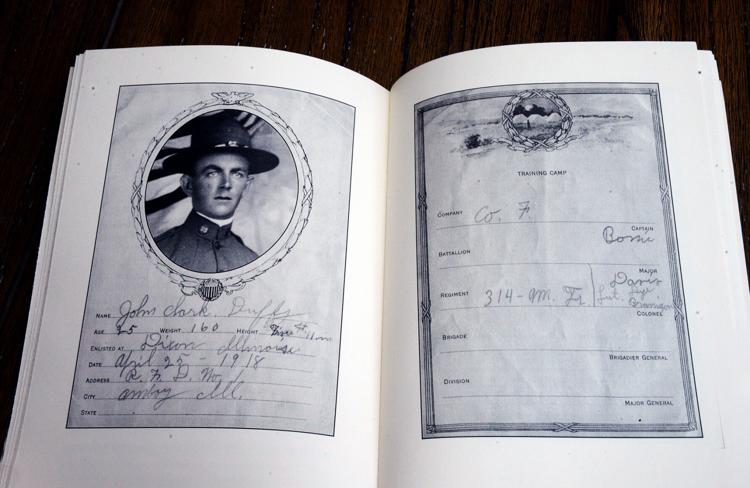 NAME John Clark Duffy
AGE 25 WEIGHT 160 HEIGHT Five ft 11
ENLISTED AT Dixon Illinois
DATE April 25 - 1918
ADDRESS R. F. D. No.
CITY Amboy Ill.
STATE
TRAINING CAMP
COMPANY Co. F
CAPTAIN
BATTALION
MAJOR
REGIMENT 314 - Am. Davis
COLONEL
BRIGADE
BRIGADIER GENERAL
DIVISION
MAJOR GENERAL